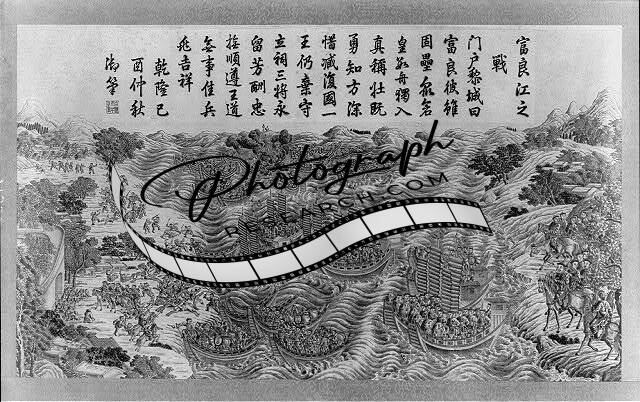 富良江之
戰
門戶黎城曰
富良彼雖
固壘
舟獨入
真稱壯既
勇知方深
惜 復國一
王仍棄守
立祠三將永
留芳酬忠
撫順遵王道
無事佳兵
兆吉祥
乾隆己
酉仲秋
御筆
Photograph
RESEARCH.COM